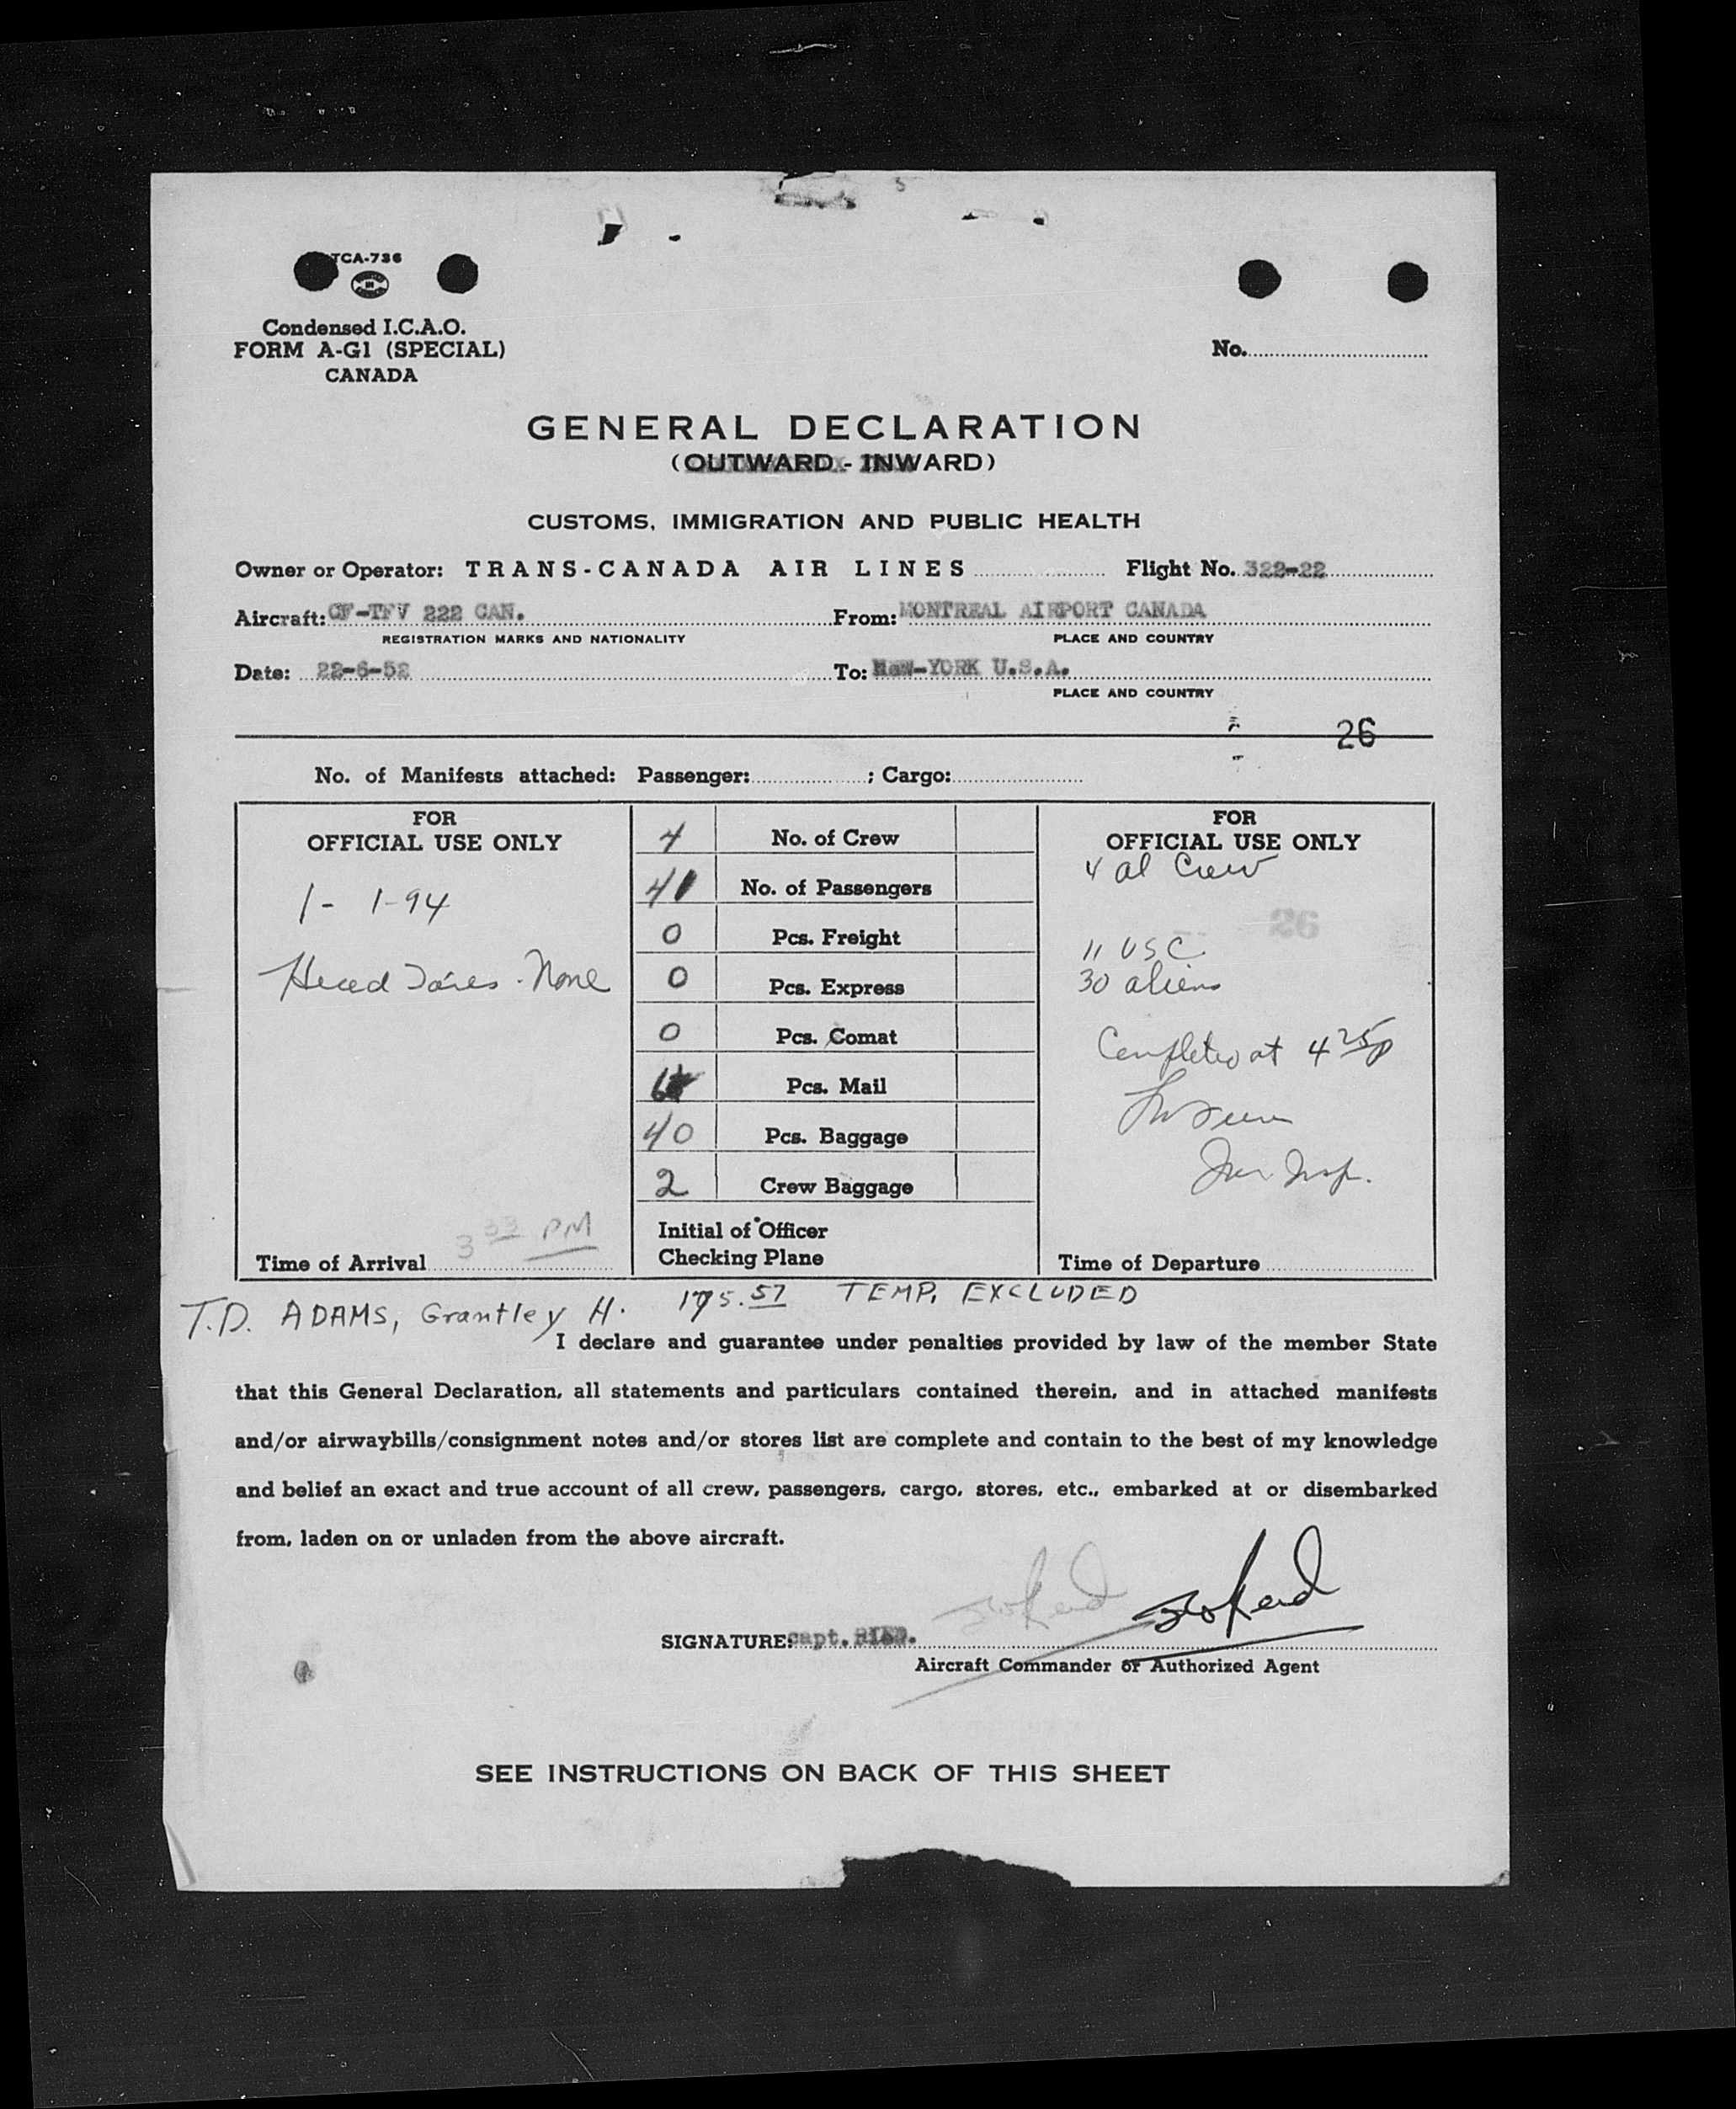 TCA-736
Condensed I.C.A.O.
FORM A-G1 (SPECIAL)
CANADA
No.
GENERAL DECLARATION
(OUTWARD - INWARD)
CUSTOMS, IMMIGRATION AND PUBLIC HEALTH
Owner or Operator: TRANS-CANADA AIR LINES Flight No. 322-22
Aircraft: CF-TFV 222 CAN. From: MONTREAL AIRPORT CANADA
REGISTRATION MARKS AND NATIONALITY PLACE AND COUNTRY
Date: 22-6-52 To: New-YORK U.S.A.
PLACE AND COUNTRY
26
No. of Manifests attached: Passenger: ; Cargo:
FOR
OFFICIAL USE ONLY
1- 1-94
Head Taxes - None
Time of Arrival 3 33 PM
4 No. of Crew
41 No. of Passengers
0 Pcs. Freight
0 Pcs. Express
0 Pcs. Comat
Pcs. Mail
40 Pcs. Baggage
2 Crew Baggage
Initial of Officer
Checking Plane
FOR
OFFICIAL USE ONLY
4 al Crew
26
11 USC
30 aliens
Completed at 4 25p
Imm Insp.
Time of Departure
T.D. ADAMS, Grantley H. 175.57 TEMP. EXCLUDED
I declare and guarantee under penalties provided by law of the member State
that this General Declaration, all statements and particulars contained therein, and in attached manifests
and/or airwaybills/consignment notes and/or stores list are complete and contain to the best of my knowledge
and belief an exact and true account of all crew, passengers, cargo, stores, etc., embarked at or disembarked
from, laden on or unladen from the above aircraft.
SIGNATURE: Capt.
Aircraft Commander or Authorized Agent
SEE INSTRUCTIONS ON BACK OF THIS SHEET